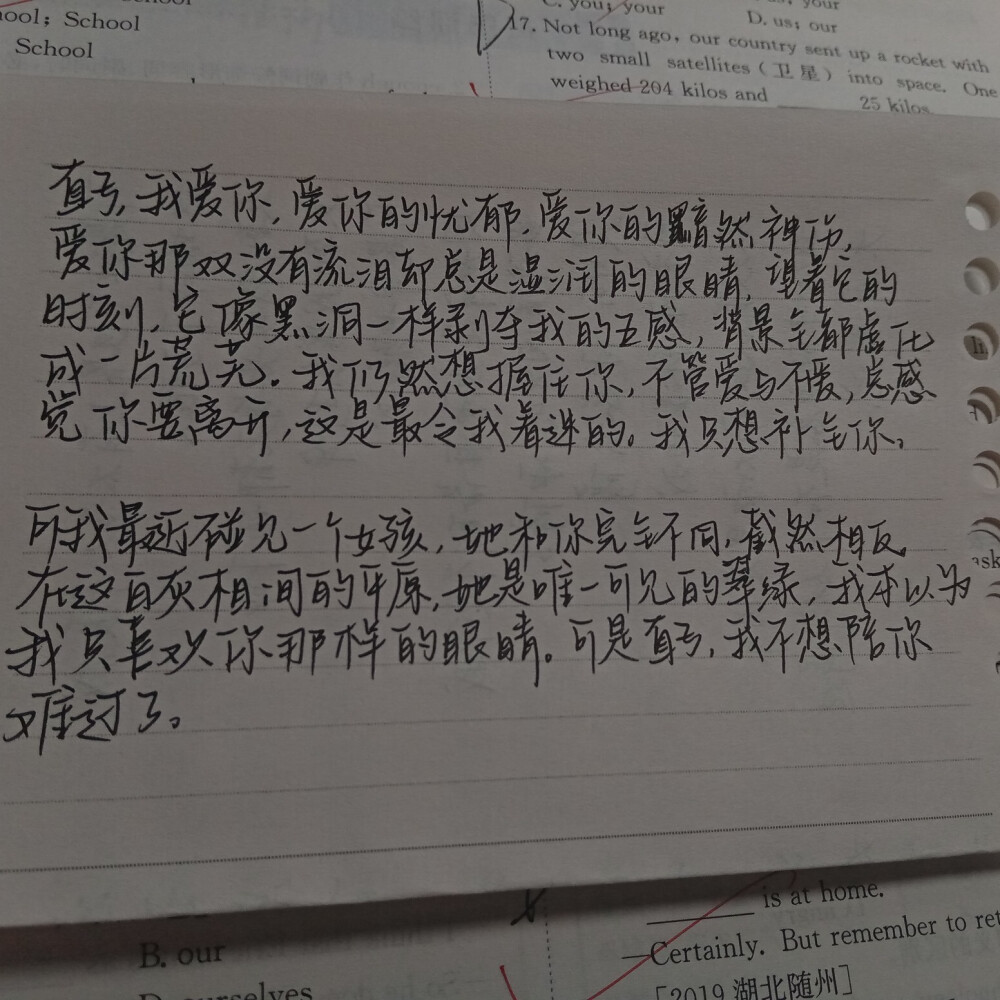 C. you; your
ool; School
School
D. us; our
17. Not long ago, our country sent up a rocket with
two small satellites（卫星）into space. One
weighed 204 kilos and ______ 25 kilos.
直亏，我爱你，爱你的忧郁，爱你的黯然神伤，
爱你那双没有流泪却总是湿润的眼睛，望着它的
时刻，它像黑洞一样剥夺我的五感，背景全都虚化
成一片荒芜。我仍然想握住你，不管爱与不爱，总感
觉你要离开，这是最令我着迷的。我只想补全你。
可我最近碰见一个女孩，她和你完全不同，截然相反
在这白灰相间的平原，她是唯一可见的翠绿，我本以为
我只喜欢你那样的眼睛。可是直亏，我不想陪你
难过了。
______ is at home.
B. our
—Certainly. But remember to ret
D. ourselves
[2019 湖北随州]